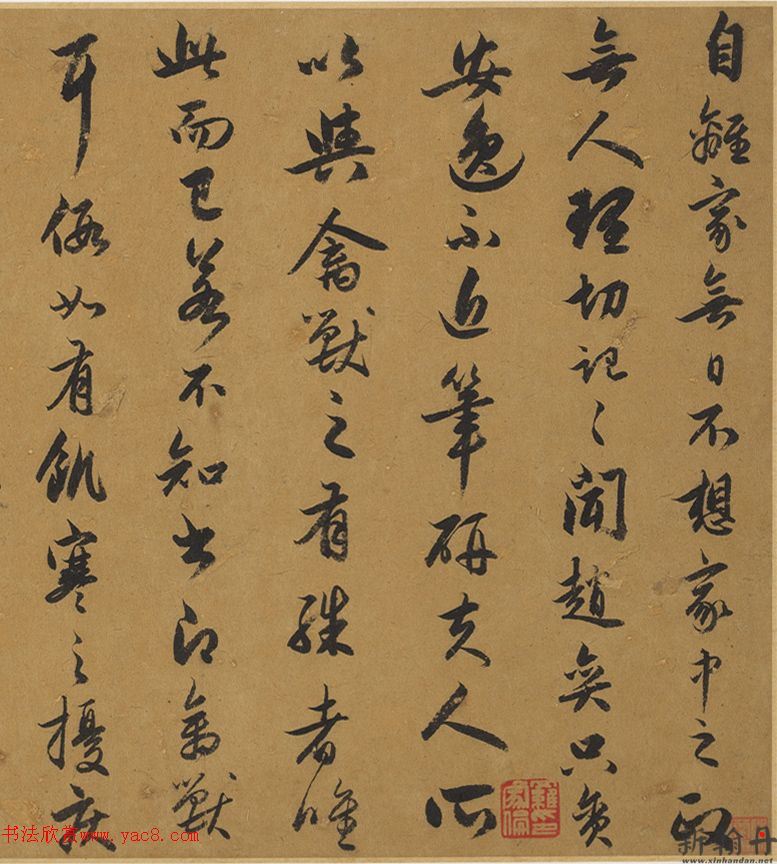 自離家無日不想家中之
無人理切記々聞趙奕只貪
安逸不近筆研夫人所
以與禽獸之有殊者唯
此而已若不知書即禽獸
耳假如有飢寒之擾
书法欣赏www.yac8.com
新翰丹
www.xinhandan.net